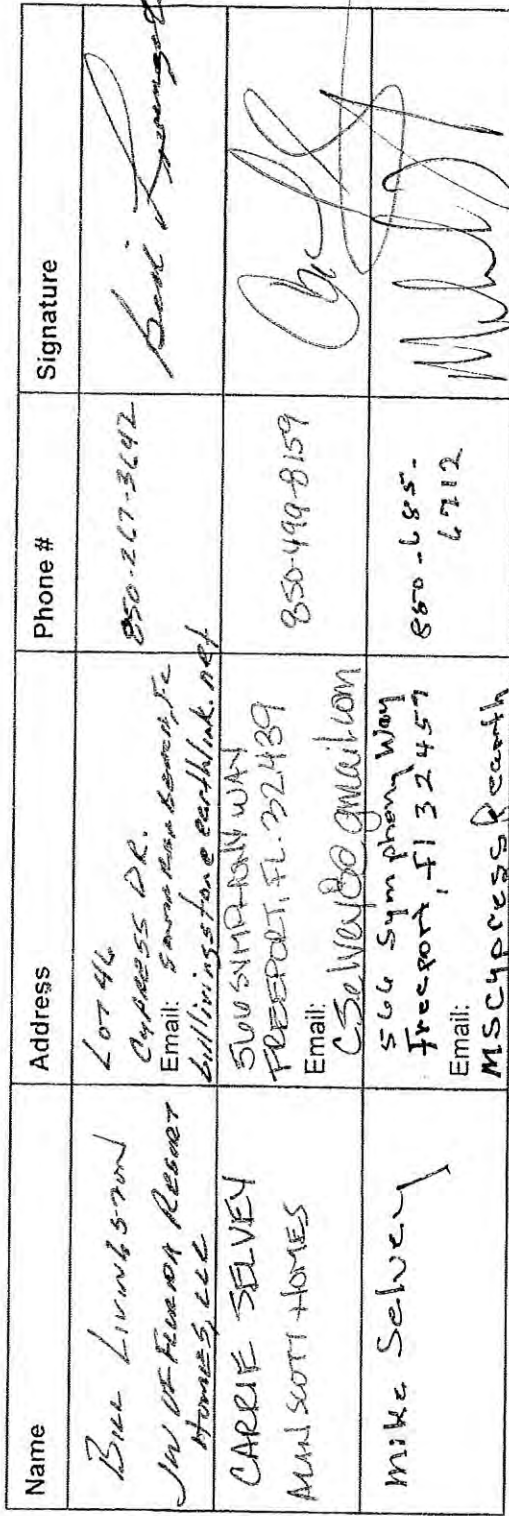 Name Address Phone # Signature
Bill Livingston
JW of Florida Resort
Homes, LLC
Lot 46
Cypress Dr.
Email: Beach, FL
billlivingston@earthlink.net
850-267-3642
CARRIE SELVEY
ALAN SCOTT HOMES
566 SYMPHONY WAY
FREEPORT, FL. 32439
Email:
CSelvey80@gmail.com
850-499-8159
Mike Selvey
566 Symphony Way
Freeport, Fl 32457
Email:
850-685-
6712